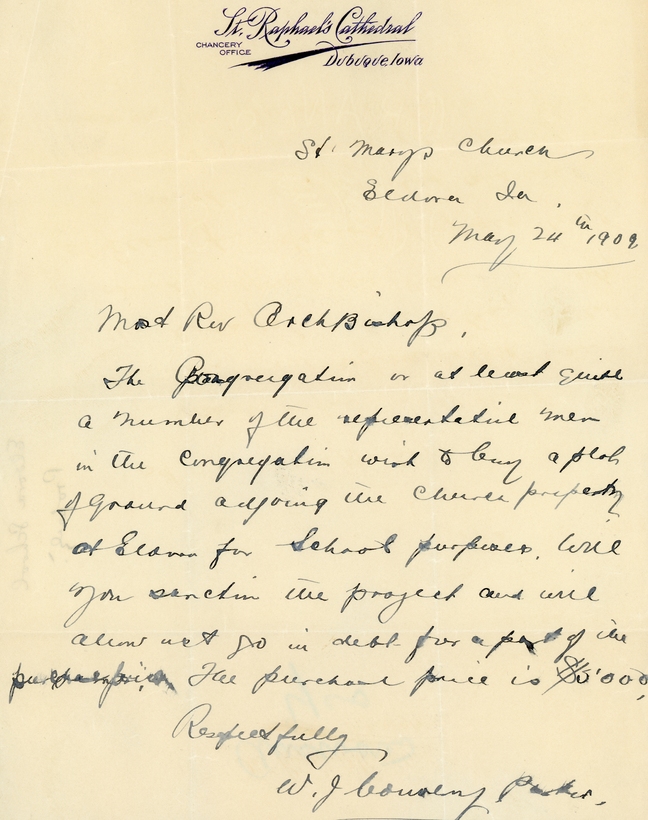 St. Raphael's Cathedral
CHANCERY
OFFICE
Dubuque, Iowa
St. Marys Church
Eldora Ia.
May 24th 1909
Most Rev ArchBishop,
The Congregation or at least quite
a number of the representative men
in the Congregation wish to buy a plot
of Ground adjoing the Church property
at Eldora for School purposes. Will
you sanction the project and will
allow us to go in debt for a part of the
purchase price. The purchase price is $5000,
Respectfully
W. J. Convery Pastor.